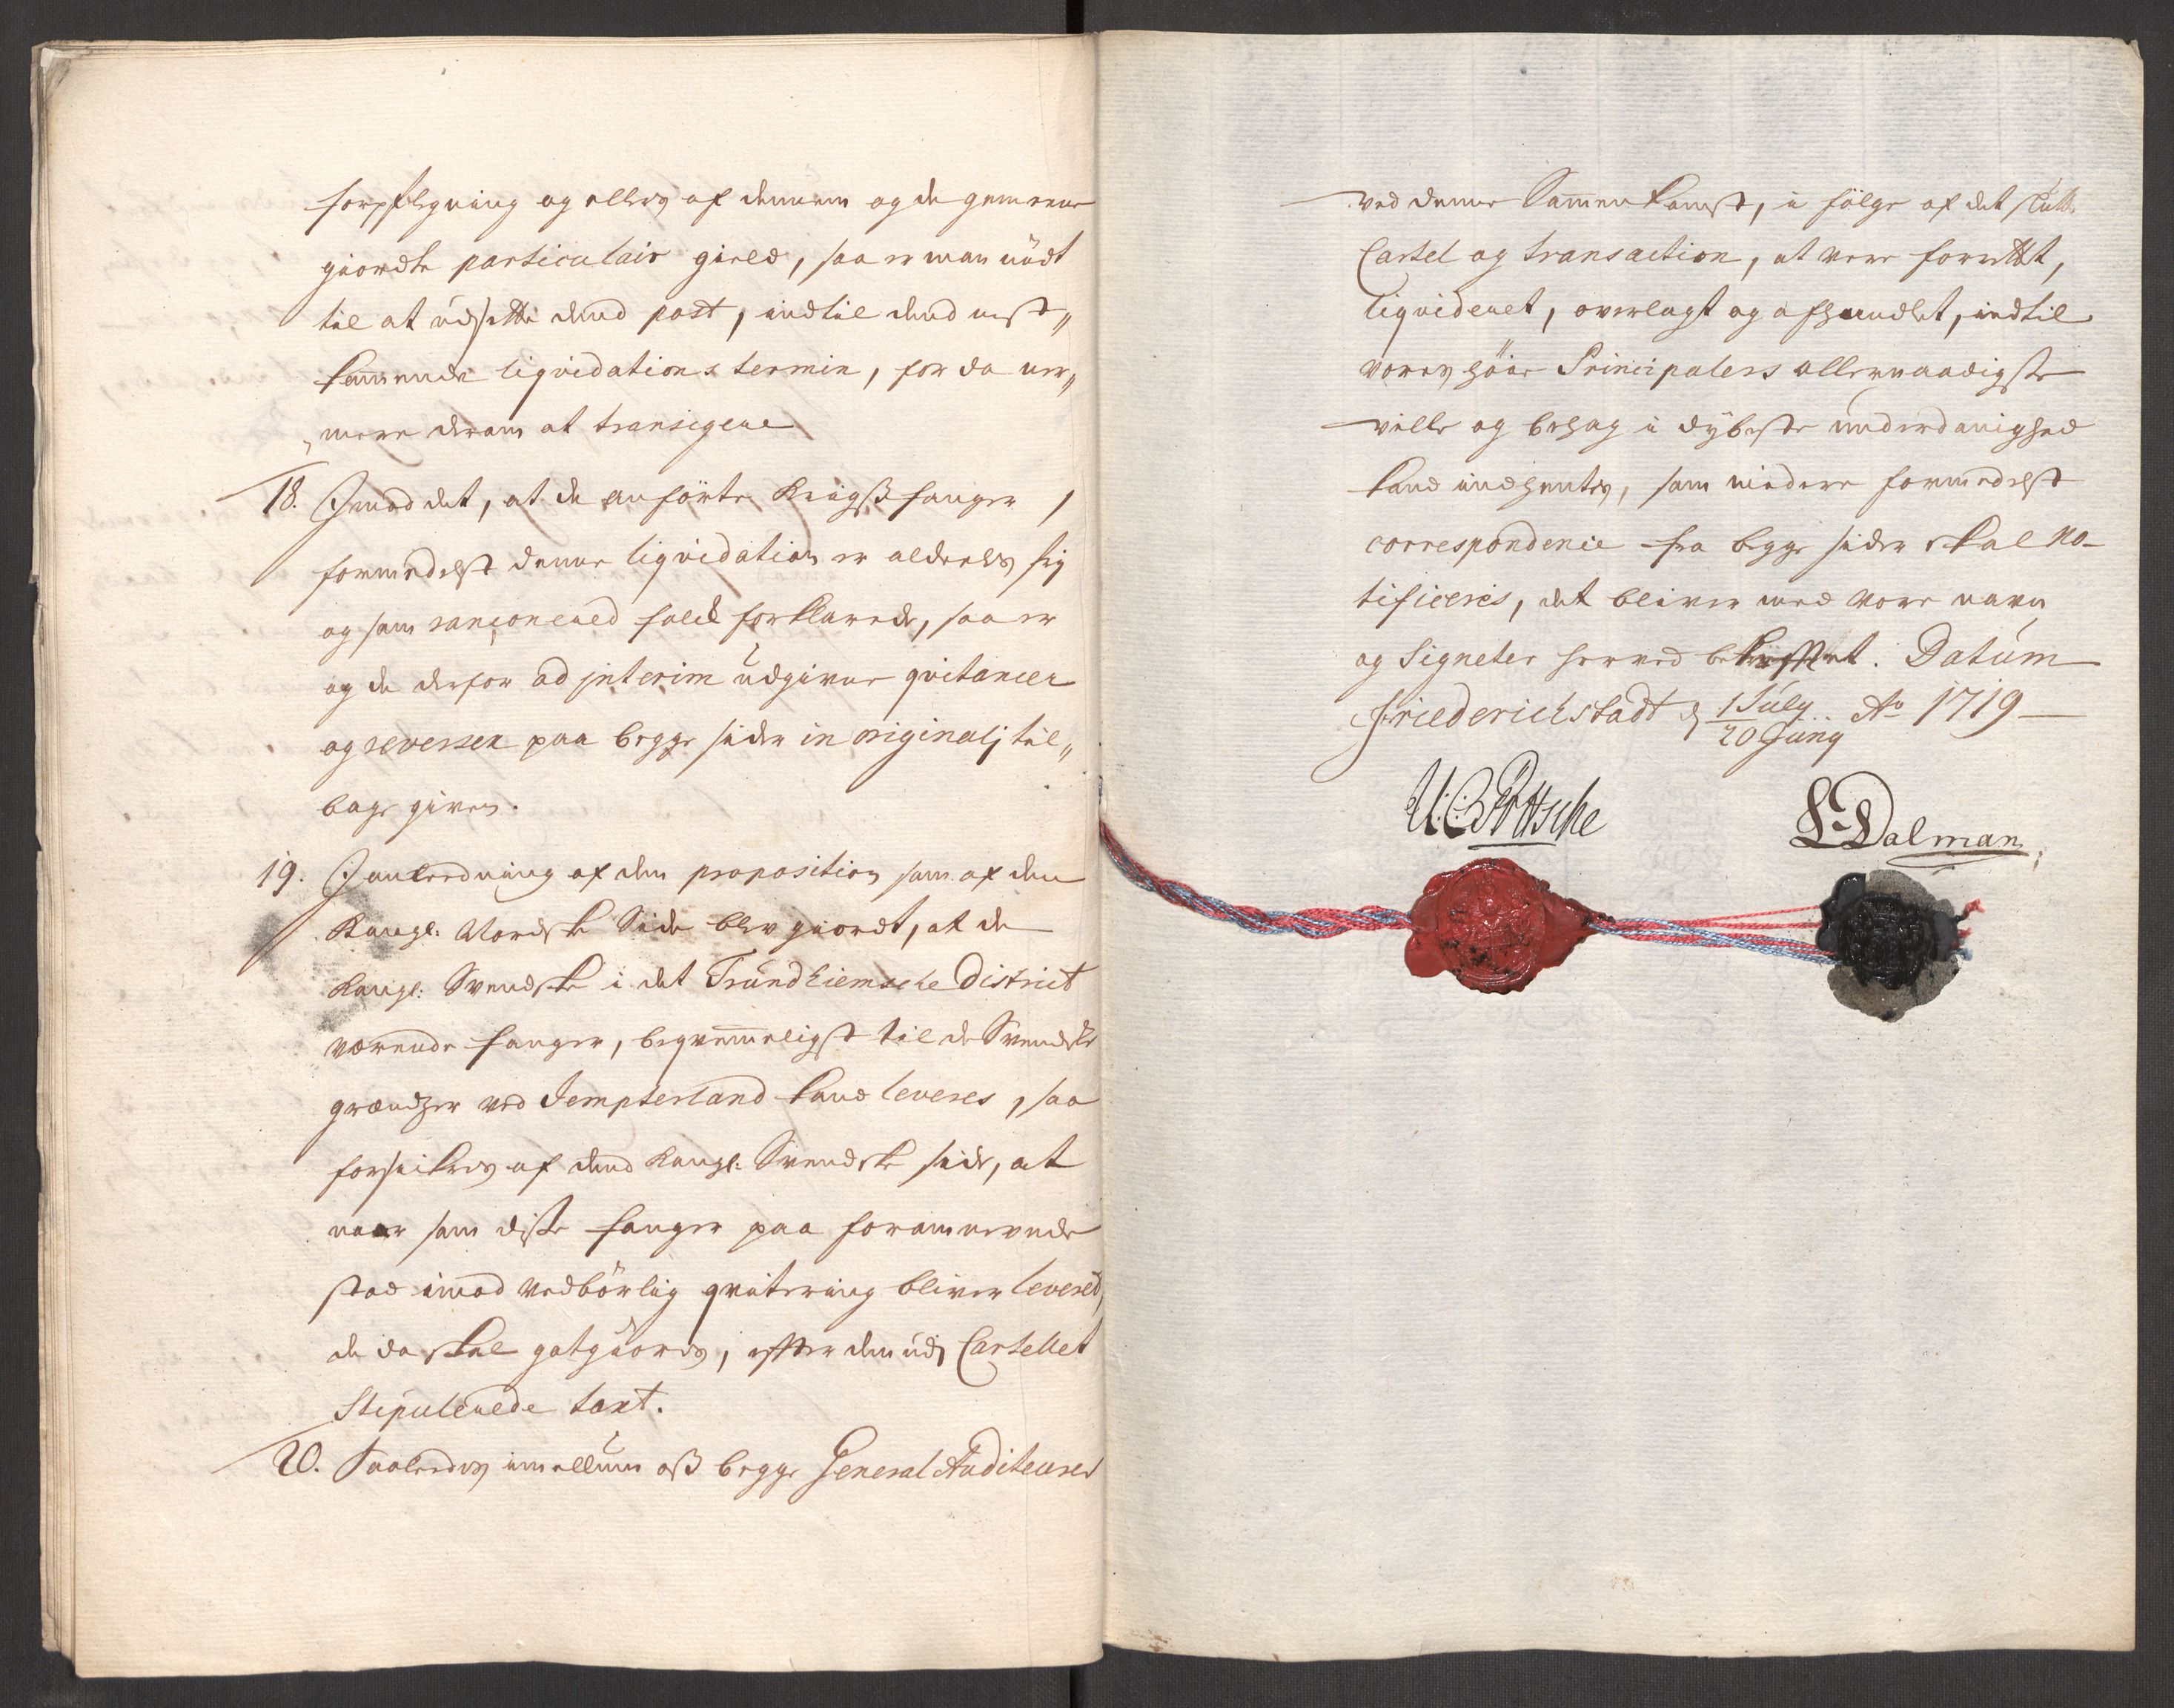 forpflegning og ellers af dennem og de gemeene
giordte particulair gield, saa er man nödt
til at udsette dend post, indtil dend nest„
kommende liqvidations termin, for da ner„
„mere derom at transigere
18. Imod det, at de anförte Krigsfanger,
formedelst denne liqvidation er aldeeles frj
og som rançonered folck forklarede, saa er
og de derfor ad jnterim udgivne qvitancer
og reverser paa begge sider in originalj til„
bage given.
19. J anledning af den proposition som af den
Kongl: Norske Side blev giordt, at de
Kongl: Svendske i det Trundhiemsche District
værende fanger, beqvemmeligst til de Svendske
grændser ved Jempterland kand leveres, saa
forsickres af dend Kongl: Svendske side, at
naar som disse fanger paa foromnevnde
stad imod vedbörlig qvitering bliver levered,
de da skal gotgiöres, effter den udj Cartellet
Stipulerede taxt.
20. Saaledes imellum oss begge General Auditeurer
ved denne Sammenkomst, i fölge af det slutt.
Cartel og transaction, at vere forrettet,
liqvideret, overlagt og afhandlet, indtil
vores höie Principalers allernaadigste
ville og behag i dybeste underdanighed
kand indhentes, som videre formedelst
correspondence fra begge sider skal no-
tificeres, det bliver med vore navn
og Signeter herved bekreftet. Datum
Friederichstadt d 1 July / 20 Juny Ao 1719
U: C: Pötsche
L Dalman